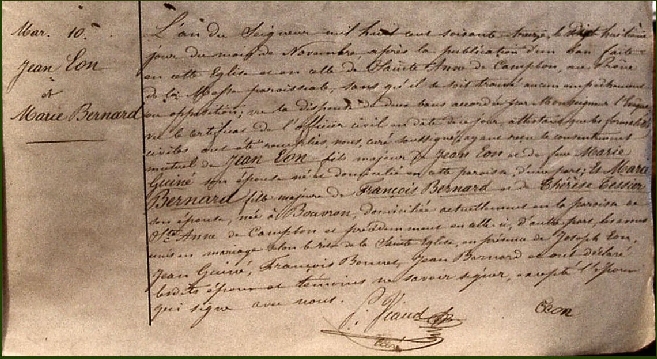 Mar. 10.
Jean Eon
et
Marie Bernard
L'an du Seigneur mil huit cent soixante-treize, le huitième
jour du mois de Novembre après la publication d'un ban faite
en cette Eglise et en celle de Sainte Anne de Campbon, au Prône
de la Messe paroissiale, sans qu'il se soit trouvé aucun empêchement
ou opposition; vu la dispense de deux bans accordée par Monseigneur l'Evêque,
vu le certificat de l'Officier civil en date de ce jour, attestant que les formalités
civiles ont été remplies nous, curé soussigné, ayant reçu le consentement
mutuel de Jean Eon fils majeur de Jean Eon et de feue Marie
Guiné son épouse né et domicilié en cette paroisse, d'une part; et Marie
Bernard fille majeure de François Bernard et de Thérèse Tessier
son épouse, née à Bouvron, domiciliée actuellement en la paroisse de
Ste Anne de Campbon et précédemment en celle-ci, d'autre part les avons
unis en mariage selon le rite de la Sainte Eglise, en présence de Joseph Eon,
Jean Guiné, François Bonnet, Jean Bernard et ont déclaré
lesdits époux et témoins ne savoir signer, excepté l'époux
qui signe avec nous.
Eon